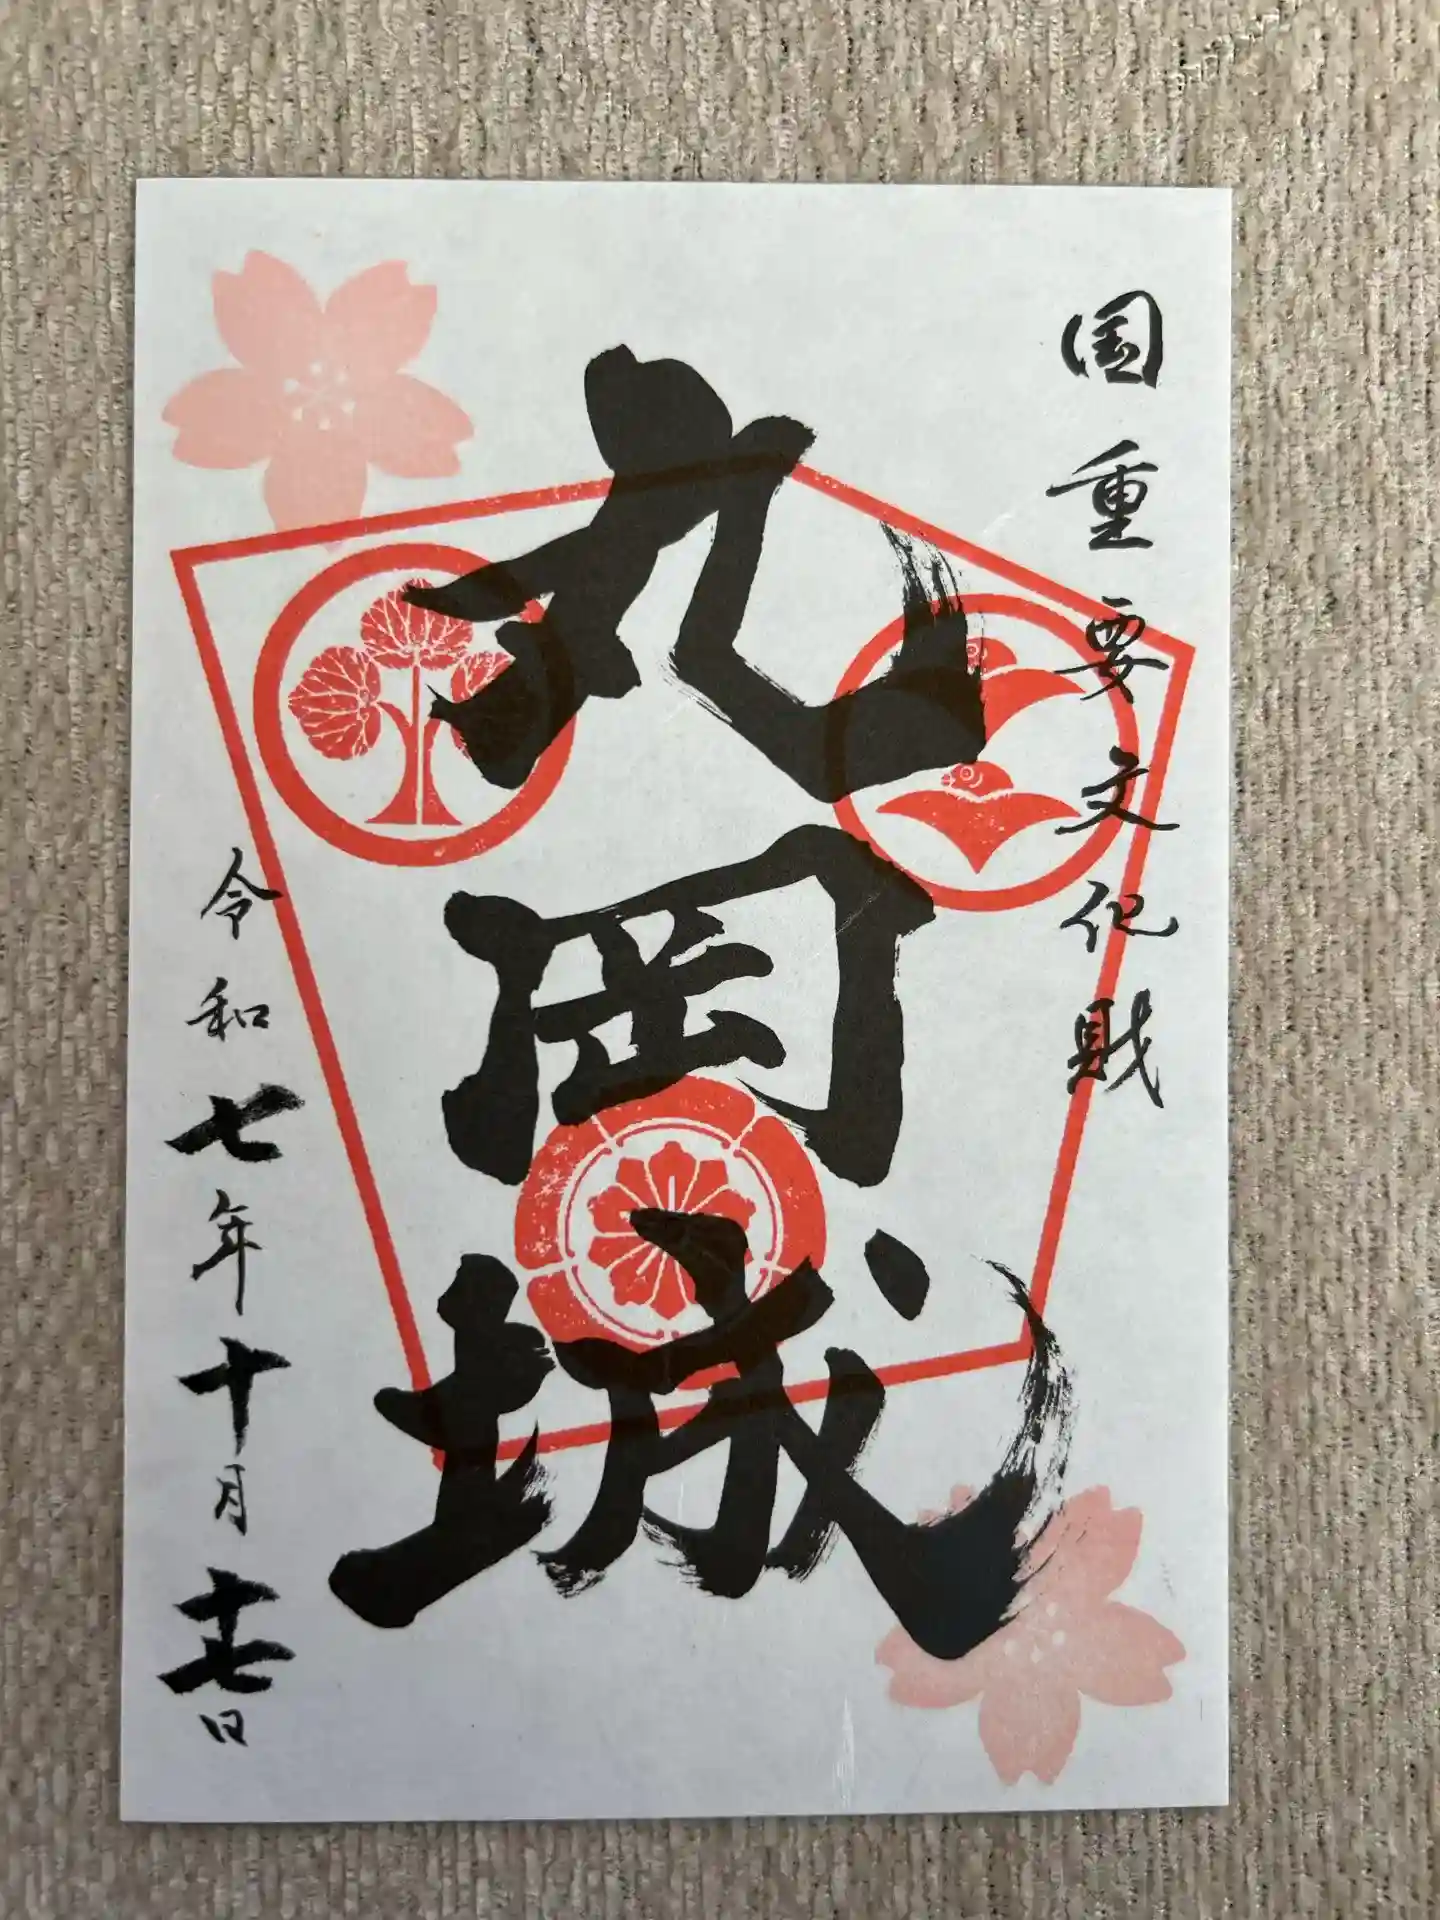 国重要文化財
丸岡城
令和七年十月十七日